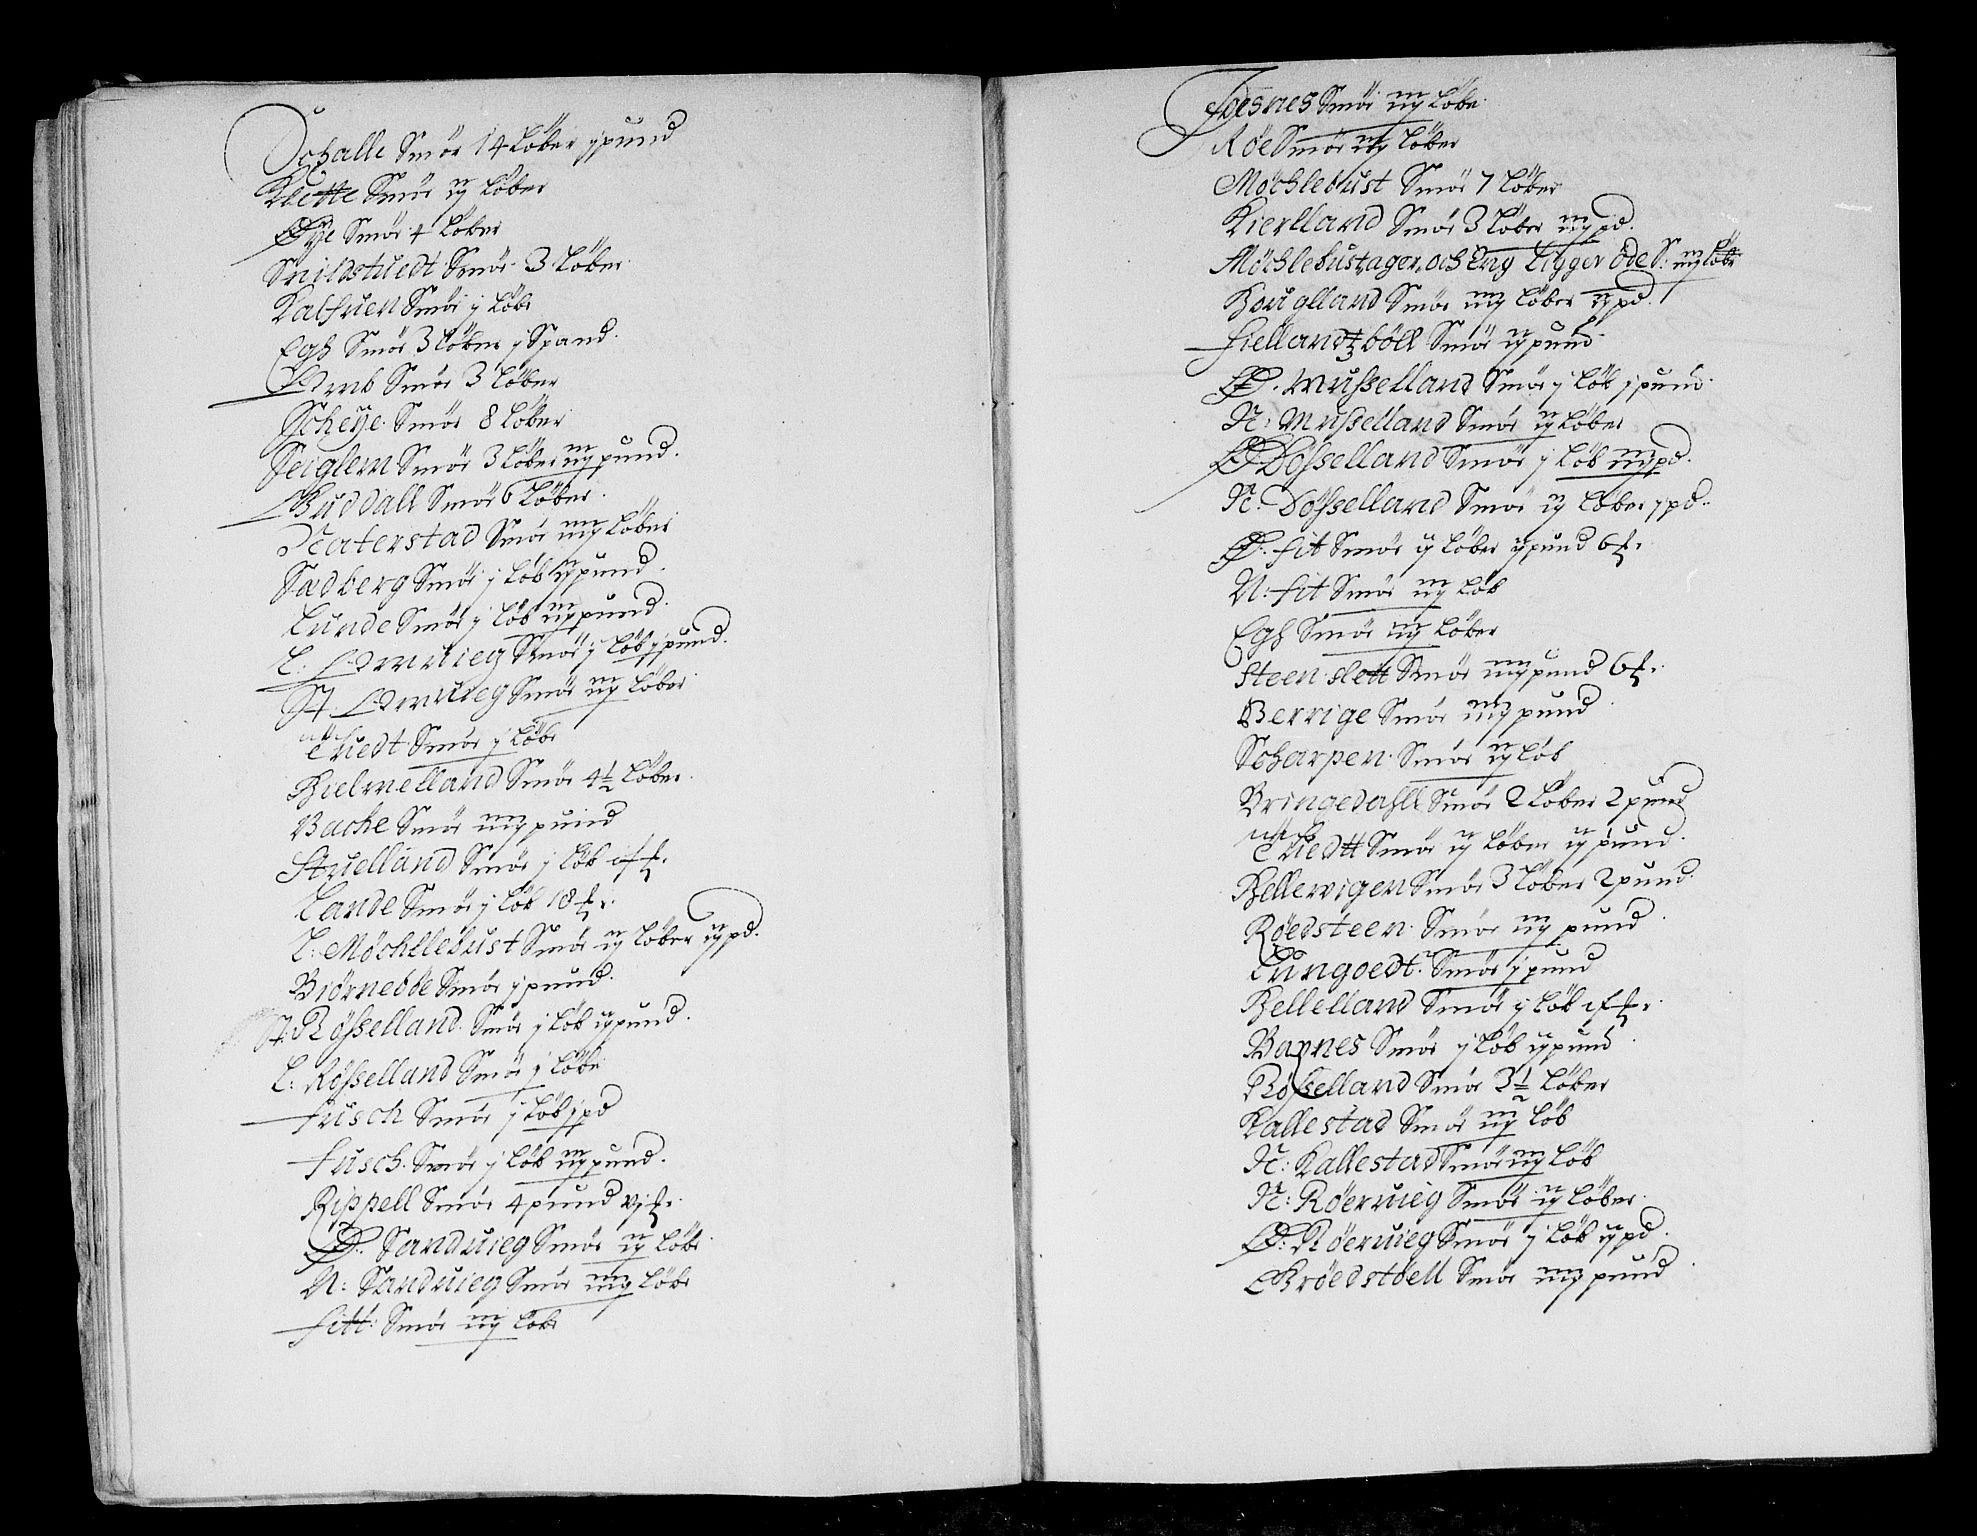 Schalle Smör 14 Löber j pund
Klette Smör ij Löber
Øye Smör 4 Löber
Snildstuedt Smör 3 Löber
Kalfuen Smör j Löb
Egh Smör 3 Löber j Spand.
Smör 3 Löber
Scheye Smör 8 Löber
Teiglem Smör 3 Löber iij pund.
Buddall Smör 6 Löber.
Naterstad Smör iiij Löber
Sadberg Smör j Löb ij pund.
Lunde Smör j Löb iij pund.
L: Omuieg Smör j Löb j pund.
St: Omuieg Smör iij Löber
Tuedt Smör j Löb
Bielmelland Smör 4½ Löber.
Backe Smör iiij pund
Struelland Smör j Löb
Lande Smör j Löb 18
L: Möchllebust Smör ij Löber ij pd.
Biörneböe Smör j pund.
St: Rösselland Smör j Löb ij pund.
L: Rösselland Smör j Löb
Fusch Smör j Löb j pd
Fusch Smör j Löb iij pund.
Rippell Smör 4 pund vj
Ø: Sanduieg Smör ij Löb
N: Sanduieg Smör iiij Löb
Fitt: Smör iij Löb
Foesnes Smör iij Löbe
Röe Smör iij Löber
Möchlebust Smör 7 Löber
Kierlland Smör 3 Löber iij pd.
Möchlebust, ager, och Eng Ligger öde S: iiij Löbr
Houglland Smör iiij Löber ij pd.
Fiellandtz böll Smör ij pund
Ø. Musselland Smör j Löb j pund.
N: Musselland Smör ij Löber
Ø Dösselland Smör j Löb iiij pd.
N: Dösselland Smör ij Löber j pd.
Ø: Fit Smör ij Löber ij pund 6
N: Fit Smör iij Löb
Egh Smör iij Löber
Steenslett Smör iiij pund 6
Berrige Smör iiij pund
Scharpen Smör ij Löb
Bringedahll Smör 2 Löber 2 pund
Tuedtt Smör ij Löber ij pund.
Hellewigen Smör 3 Löber 2 pund.
Röedsteen Smör iij pund
Lungoedt Smör j pund
Hellelland Smör j Löb
Baones Smör j Löb ij pund
Rösselland Smör 3½ Löber
Kallestad Smör iij Löb
N: Kallestad Smör iij Löb
N: Röeruieg Smör ij Löber.
Ø: Röeruieg Smör j Löb ij pd.
Bröedstöell Smör iiij pund